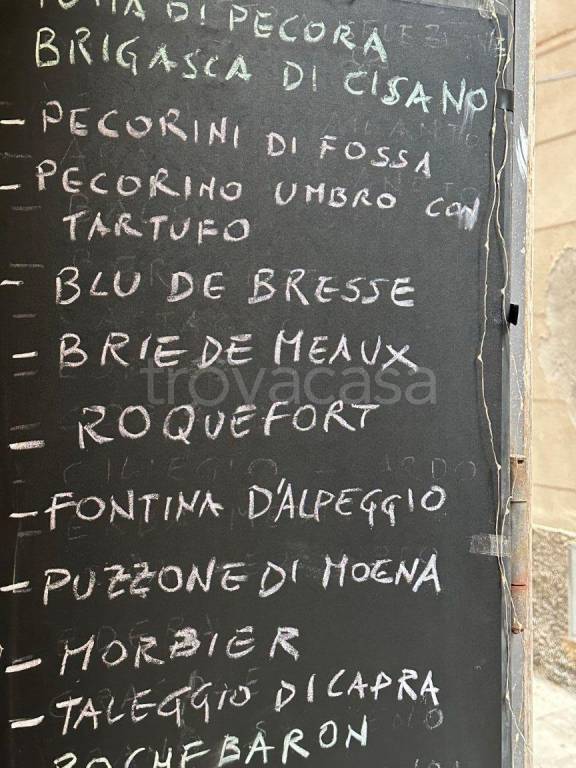 TOMA DI PECORA
BRIGASCA DI CISANO
- PECORINI DI FOSSA
- PECORINO UMBRO CON
TARTUFO
- BLU DE BRESSE
- BRIE DE MEAUX
trovacasa
- ROQUEFORT
- FONTINA D'ALPEGGIO
- PUZZONE DI MOENA
- MORBIER
- TALEGGIO DI CAPRA
ROCHEBARON